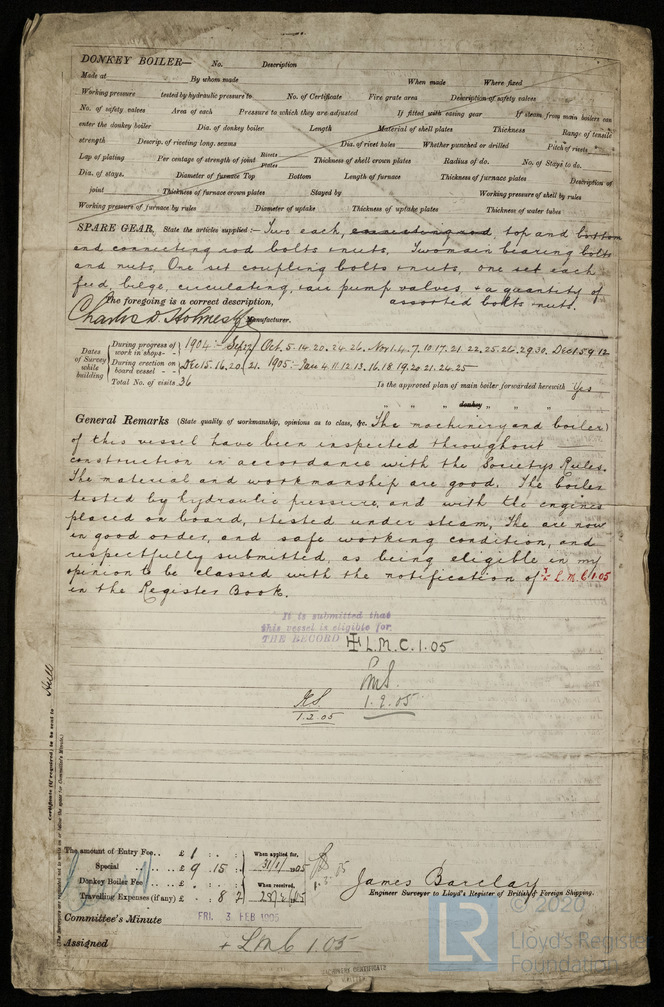 DONKEY BOILER— No. Description
Made at By whom made When made Where fixed
Working pressure tested by hydraulic pressure to No. of Certificate Fire grate area Description of safety valves
No. of safety valves Area of each Pressure to which they are adjusted If fitted with easing gear If steam from main boilers can
enter the donkey boiler Dia. of donkey boiler Length Material of shell plates Thickness Range of tensile
strength Descrip. of riveting long. seams Dia. of rivet holes Whether punched or drilled Pitch of rivets
Lap of plating Per centage of strength of joint Rivets Plates Thickness of shell crown plates Radius of do. No. of Stays to do.
Dia. of stays. Diameter of furnace Top Bottom Length of furnace Thickness of furnace plates Description of
joint Thickness of furnace crown plates Stayed by Working pressure of shell by rules
Working pressure of furnace by rules Diameter of uptake Thickness of uptake plates Thickness of water tubes
SPARE GEAR. State the articles supplied:— Two each, connecting rod, top and bottom
end connecting rod bolts & nuts. Two main bearing bolts
and nuts, One set coupling bolts & nuts, one set each
feed, bilge, circulating, & air pump valves, & a quantity of
assorted bolts & nuts.
The foregoing is a correct description,
Charles D. Holmes & Co Manufacturer.
Dates of Survey while building
During progress of work in shops- - 1904:- Sep 27 Oct. 5. 14. 20. 24. 26. Nov 1. 4. 7. 10. 17. 21. 22. 25. 26. 29. 30. Dec 1. 5. 9. 12
During erection on board vessel - - Dec 15. 16. 20. 21. 1905:- Jan 4. 11. 12. 13. 16. 18. 19. 20. 21. 24. 25
Total No. of visits 36 Is the approved plan of main boiler forwarded herewith Yes
" " " donkey " " "
General Remarks (State quality of workmanship, opinions as to class, &c. The machinery and boiler
of this vessel have been inspected throughout
construction in accordance with the Societys Rules.
The material and workmanship are good. The boiler
tested by hydraulic pressure, and with the engines
placed on board, & tested under steam, The are now
in good order, and safe working condition, and
respectfully submitted, as being eligible in my
opinion to be classed with the notification of + L.M.C 1.05
in the Register Book.
It is submitted that
this vessel is eligible for
THE RECORD + L.M.C. 1.05
1.2.05
1.2.05
Certificate (if required) to be sent to Hull
The amount of Entry Fee.. £ 1 : : When applied for,
Special .. £ 9 . 15 : 31/1/1905
Donkey Boiler Fee .. £ : : When received,
Travelling Expenses (if any) £ : 8 :
1.2.05
James Barclay
Engineer Surveyor to Lloyd's Register of British & Foreign Shipping.
Committee's Minute FRI. 3 FEB 1905
Assigned + LMC 1.05
LR © 2020
Lloyd's Register
Foundation